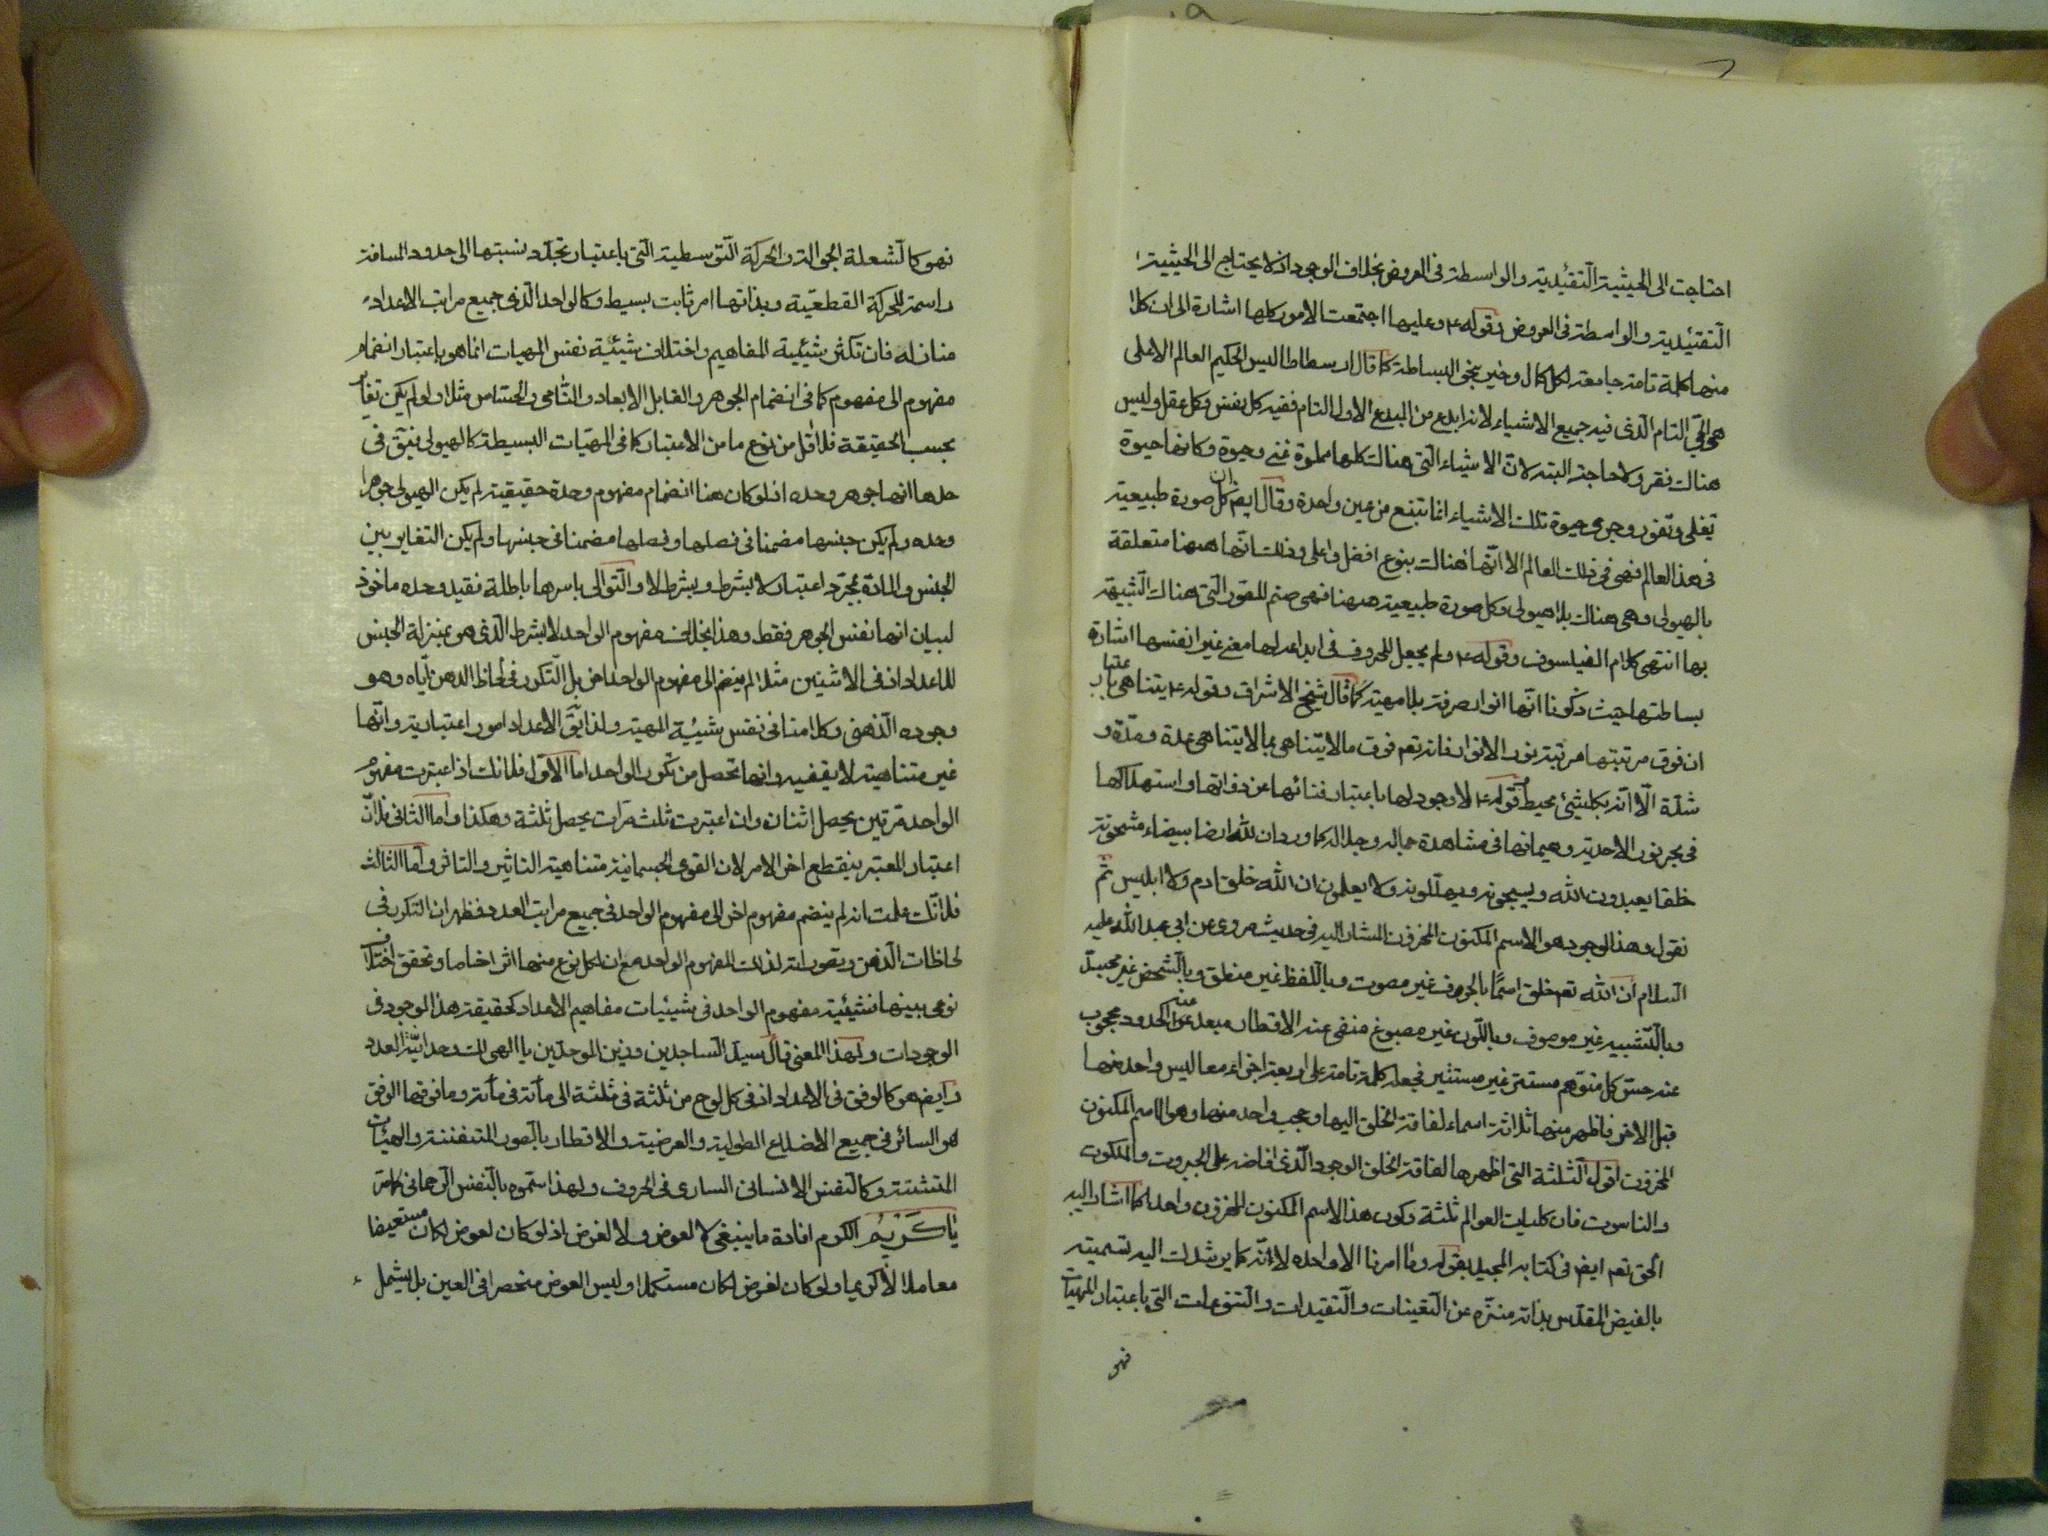 احتاجت الى الحيثية التقييدية والواسطة فى العروض بخلاف الوجود اذ لا يحتاج الى الحيثية
التقييدية والواسطة فى العروض وقوله ع وعليها اجتمعت الامور كلها اشارة الى ان كلا
منها كلمة تامة جامعة لكل كمال وخير بنحو البساطة كما قال ارسطاطاليس الحكيم العالم الاعلى
هو الحى التام الذى فيه جميع الاشياء لانه ابدع من المبدع الاول التام ففيه كل نفس وكل عقل وليس
هناك فقر ولا حاجة البتة لان الاشياء التى هناك كلها مملوة غنى وحيوة وكانها حيوة
تغلى وتفور وجرى حيوة تلك الاشياء انما تنبع من عين واحدة وقال ايضا ان كل صورة طبيعية
فى هذا العالم فهى فى ذلك العالم الا انها هناك بنوع افضل واعلى وذلك انها ههنا متعلقة
بالهيولى وهى هناك بلا هيولى وكل صورة طبيعية ههنا فهى صنم للصورة التى هناك الشبيهة
بها انتهى كلام الفيلسوف وقوله ع ولم يجعل للحروف فى ابداعه لها معنى غير انفسها اشارة
بساطتها حيث ذكرنا انها انوار صرفة بلا مهية كما قال شيخ الاشراق وقوله ع يتناهى باعتبار
ان فوق مرتبتها مرتبة نور الانوار فانه تعم فوق ما لا يتناهى بما لا يتناهى عدة ومدة و
شدة الا انه بكل شىء محيط وقوله ع لا وجود لها باعتبار فنائها عن ذواتها واستهلاكها
فى بحر نور الاحدية وهيمانها فى مشاهدة جماله وجلاله كما ورد ان لله ارضا بيضاء مشحونة
خلقا يعبدون الله ويسبحونه ويهللونه ولا يعلمون ان الله خلق ادم ولا ابليس ثم
نقول وهذا الوجود هو الاسم المكنون المخزون المشار اليه فى حديث مروى عن ابى عبد الله عليه
السلام ان الله تعم خلق اسما بالحروف غير مصوت وباللفظ غير منطق وبالشخص غير مجسد
وبالتشبيه غير موصوف وباللون غير مصبوغ منفى عنه الاقطار مبعد عنه الحدود محجوب
عنه حس كل متوهم مستتر غير مستتر فجعله كلمة تامة على اربعة اجزاء معا ليس واحد منها
قبل الاخر فاظهر منها ثلاثة اسماء لفاقة الخلق اليها وحجب واحد منها وهو الاسم المكنون
المخزون اقول الثلثة التى اظهرها لفاقة الخلق الوجود الذى افاضه على الجبروت والملكوت
والناسوت فان كليات العوالم ثلثة وكون هذا الاسم المكنون المخزون واحدا كما اشار اليه
الحق تعم ايضا فى كتابه المجيد بقوله وما امرنا الا واحدة لانه كما يرشدك اليه تسميته
بالفيض المقدس بذاته منزه عن التعينات والتقيدات والتنوعات التى باعتبار المهيات
فهو
فهو كالشعلة الجوالة والحركة التوسطية التى باعتبار تجدد نسبتها الى حدود المسافة
راسمة للحركة القطعية وبذاتها امر ثابت بسيط وكالواحد الذى جميع مراتب الاعداد
منازله فان تكثر شيئية المفاهيم واختلاف شيئية نفس المهيات انما هو باعتبار انضمام
مفهوم الى مفهوم كما فى انضمام الجوهر والقابل الابعاد والنامى والحساس مثلا ولو لم يكن تغاير
بحسب الحقيقة فلا اقل من نوع ما من الاعتبار كما فى المهيات البسيطة كالهيولى فبق فى
حدها انها جوهر وحده اذ لو كان هنا انضمام مفهوم وحدة حقيقية لم يكن الهيولى جوهرا
وحده ولم يكن جنسها مضمنا فى فصلها وفصلها مضمنا فى جنسها ولم يكن التغاير بين
الجنس والمادة بمجرد اعتبار لا بشرط وبشرط لا والتوالى باسرها باطلة فقيد وحده ماخوذ
لبيان انها نفس الجوهر فقط وهذا بخلاف مفهوم الواحد لا بشرط الذى هو بمنزلة الجنس
للاعداد اذ فى الاثنين مثلا لم ينضم الى مفهوم الواحد امر بل التكرر فى لحاظ الذهن اياه وهو
وجوده الذهنى وكلامنا فى نفس شيئية المهية ولذا بق الاعداد امور اعتبارية وانها
غير متناهية لا يقفية وانها تحصل من تكرر الواحد اما الاول فلانك اذا اعتبرت مفهوم
الواحد مرتين يحصل اثنان وان اعتبرت ثلث مرات يحصل ثلثة وهكذا واما الثانى فلان
اعتبار المعتبر ينقطع اخر الامر لان القوى الجسمانية متناهية التاثير والتاثر واما الثالث
فلانك علمت انه لم ينضم مفهوم اخر الى مفهوم الواحد فى جميع مراتب العدد فظهر ان التكرر فى
لحاظات الذهن وتصوراته لذلك المفهوم الواحد مع ان لكل نوع منها اثرا خاصا وتحقق اختلاف
نوعى بينها فشيئية مفهوم الواحد فى شيئيات مفاهيم الاعداد كحقيقة هذا الوجود فى
الوجودات ولهذا المعنى قال سيد الساجدين وزين الموحدين يا الهى لك وحدانية العدد
وايضا هو كالوفق فى الاعداد اذ فى كل لوح من ثلثة فى ثلثة الى مأتة فى مأتة وما فوقها الوفق
هو السائر فى جميع الاضلاع الطولية والعرضية والاقطار بالصور المتفننة والهيئات
المتشتتة وكالنفس الانسانى السارى فى الحروف ولهذا سموه بالنفس الرحمانى
يا كريم الكرم افادة ما ينبغى لا لعوض ولا لغرض اذ لو كان لعوض لكان مستعيضا
معاملا لا كريما ولو كان لغرض لكان مستكملا وليس العوض منحصرا فى العين بل يشمل